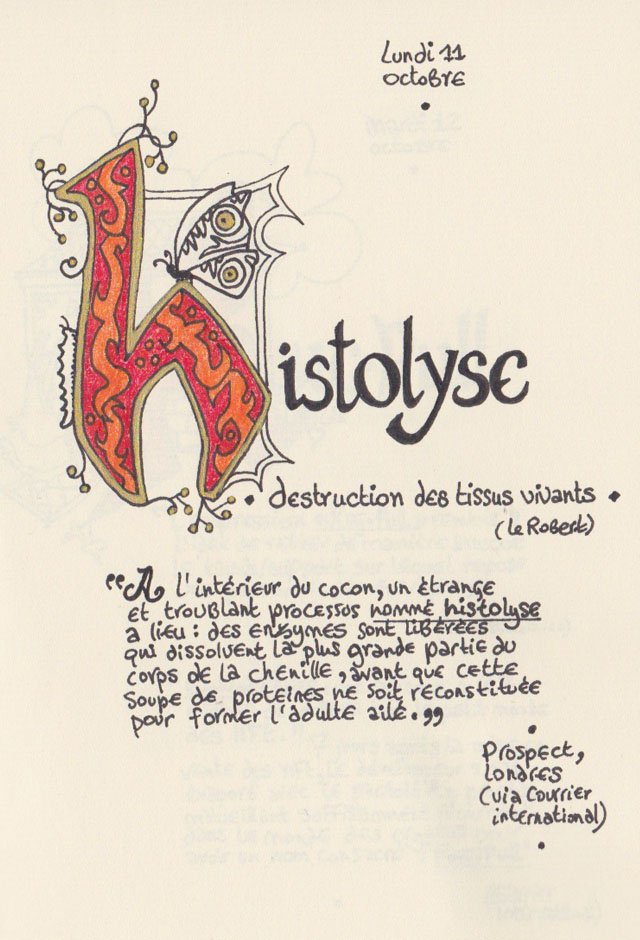 Lundi 11
octobre
histolyse
• destruction des tissus vivants •
(le Robert)
“A l'intérieur du cocon, un étrange
et troublant processus nommé histolyse
a lieu : des enzymes sont libérées
qui dissolvent la plus grande partie du
corps de la chenille, avant que cette
soupe de protéines ne soit reconstituée
pour former l'adulte ailé.”
Prospect,
Londres
(via Courrier
international)